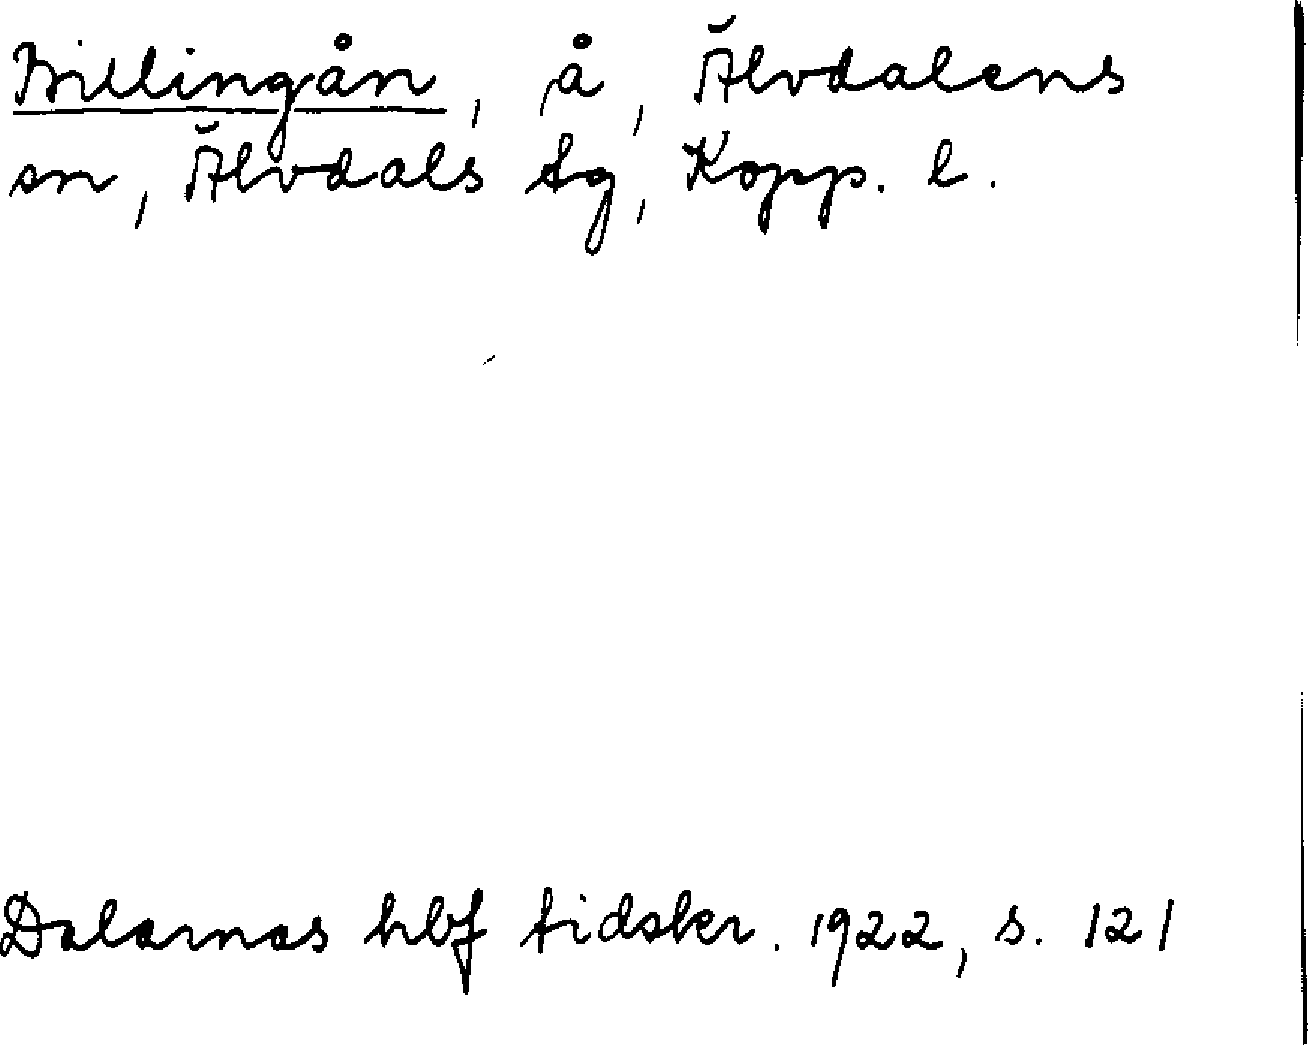 Billingån, å, Älvdalens
sn, Älvdals tg, Kopp. l.
Dalarnas hbf tidskr. 1922, s. 121